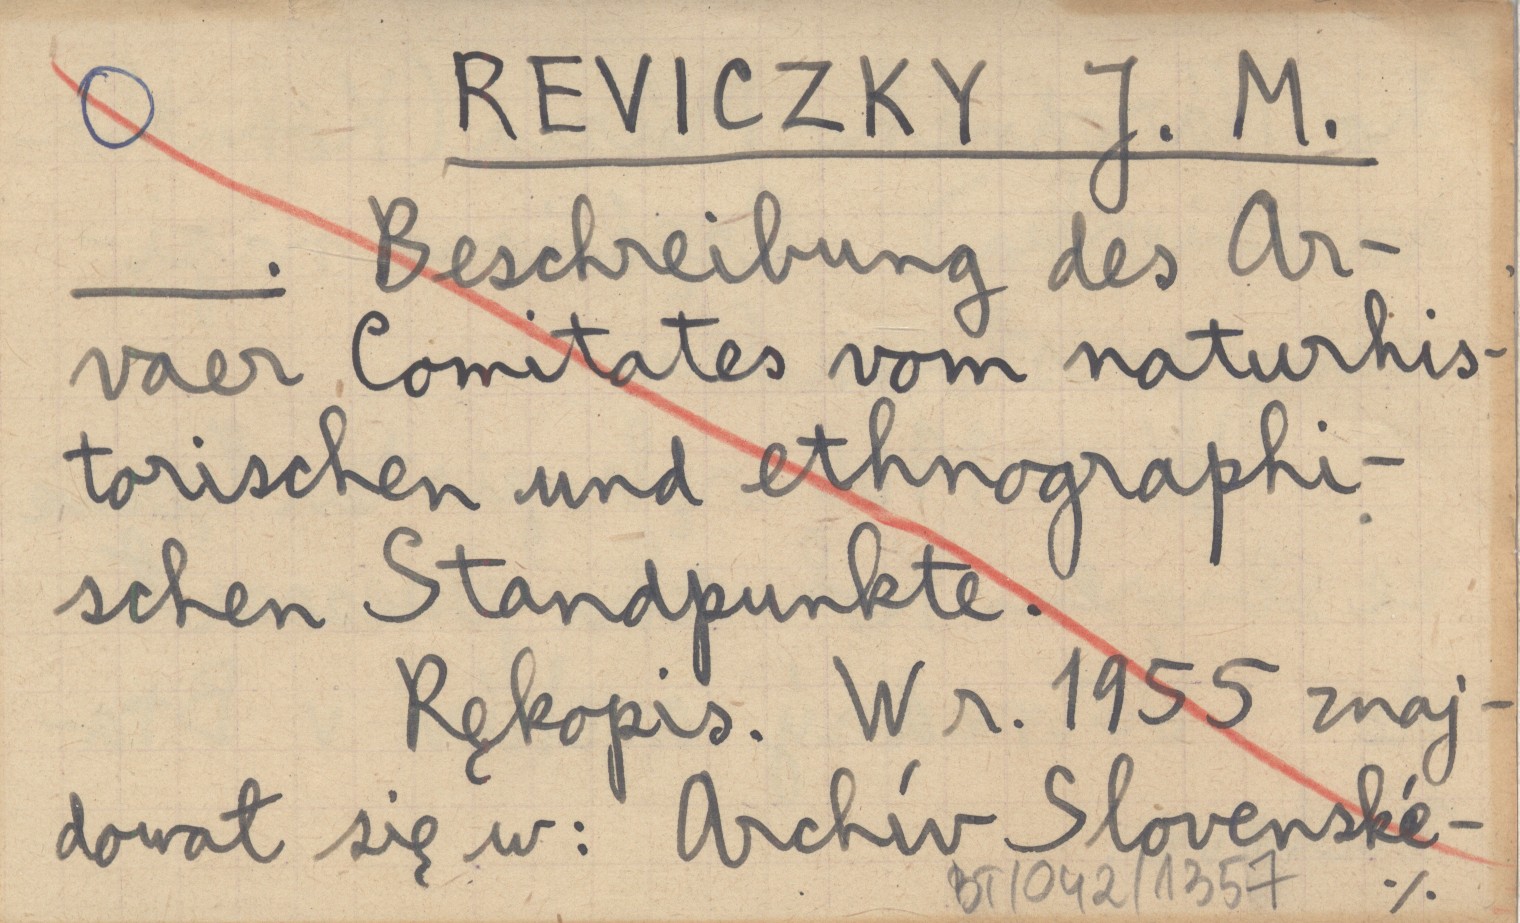 REVICZKY J. M.
____. Beschreibung des Ar-
vaer Comitates vom naturhis-
torischen und ethnographi-
schen Standpunkte.
Rękopis. W r. 1955 znaj-
dował się w: Archív Slovenské-
BT/042/1357 ./.